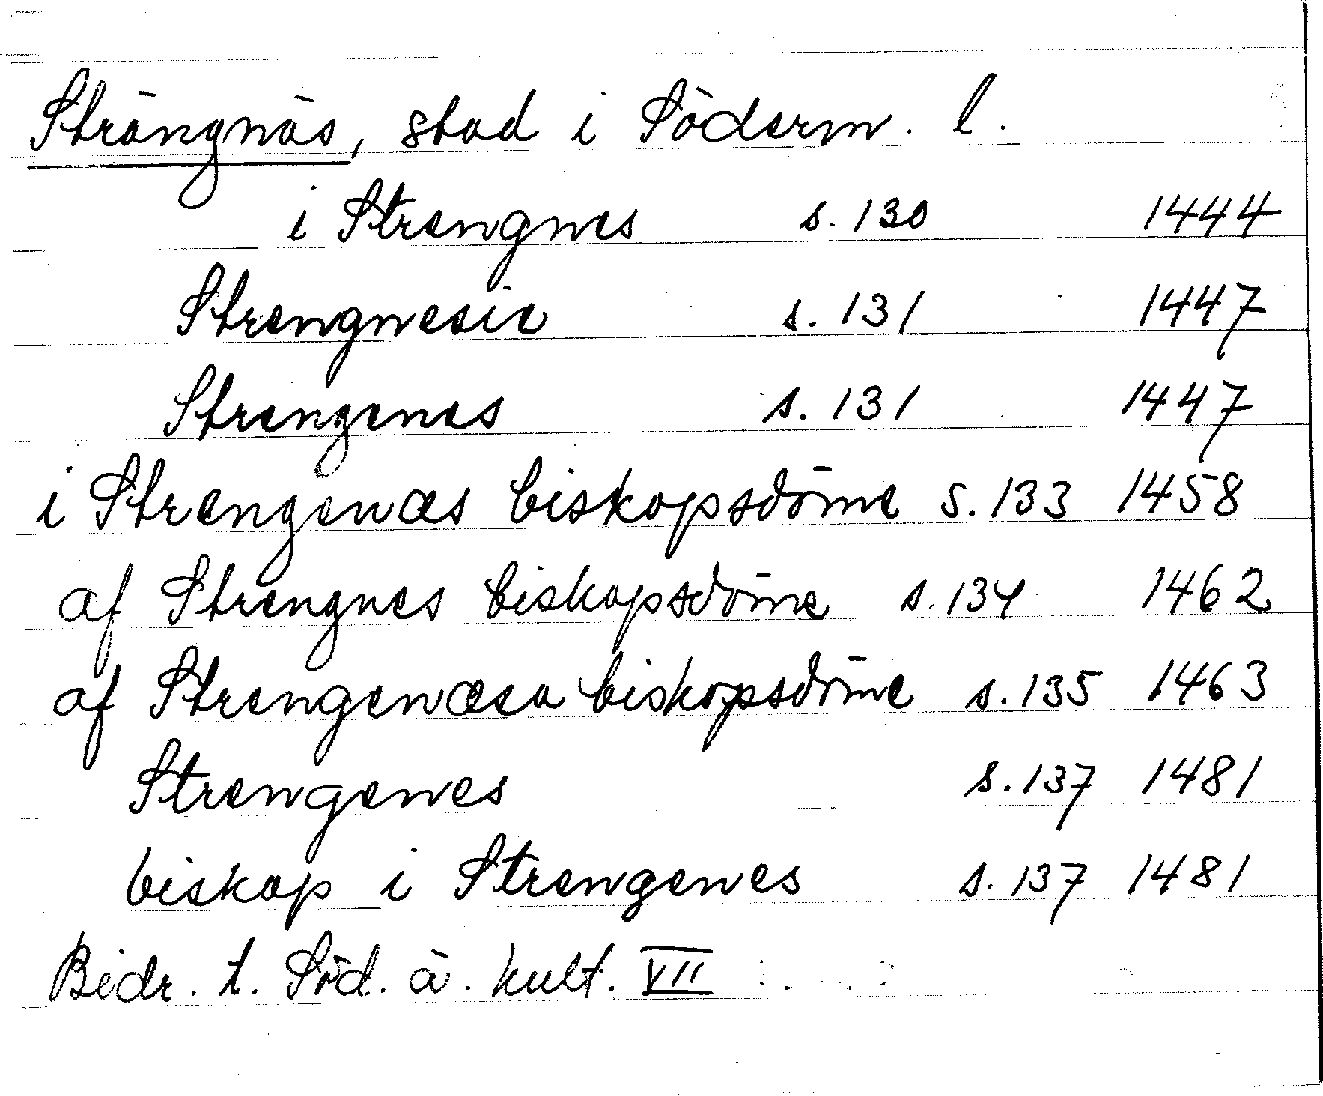 Strängnäs, stad i Söderm. l.
i Strengnes s. 130 1444
Strengnesis s. 131 1447
Strengenes s. 131 1447
i Strengenæs biskopsdöme s. 133 1458
af Strengnes biskopsdöme s. 134 1462
af Strengenæsa biskopsdöme s. 135 1463
Strengenes s. 137 1481
biskop i Strengenes s. 137 1481
Bidr. t. Söd. ä. kult. VII